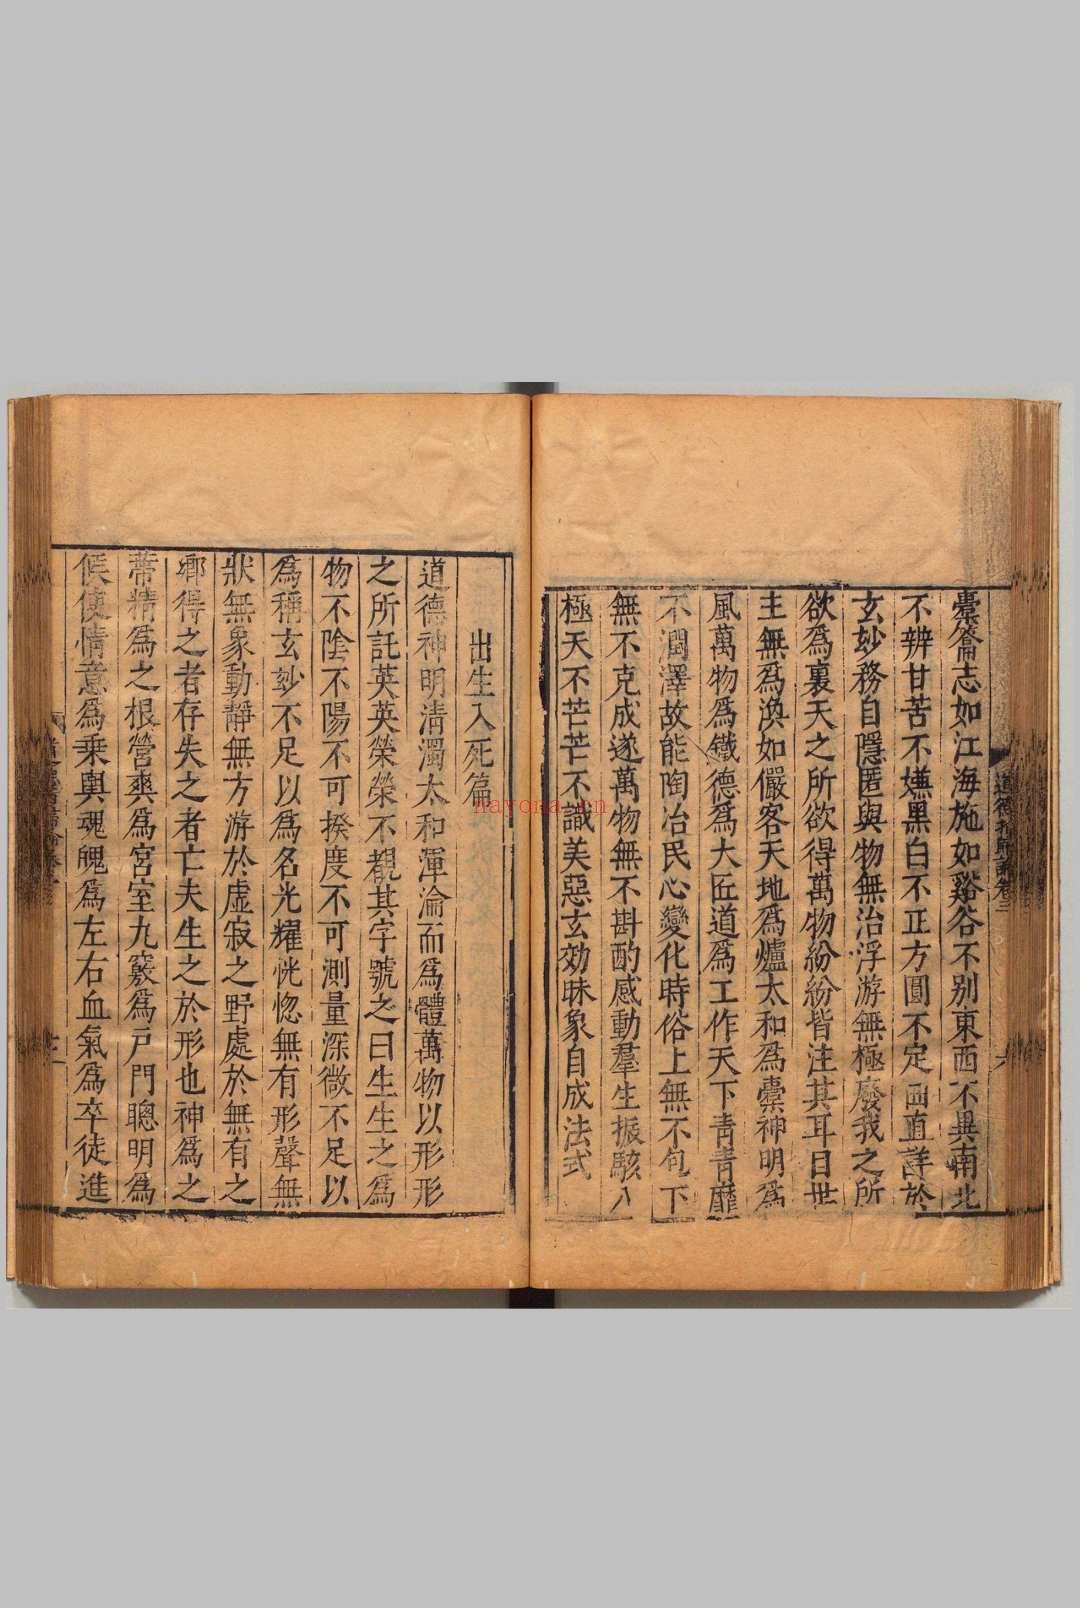 橐籥志如江海施如谿谷不别東西不異南北
不辨甘苦不嫌黑白不正方圓不定曲直詳於
玄妙務自隱匿與物無治浮游無極廢我之所
欲爲裏天之所欲得萬物紛紛皆注其耳目世
主無爲渙如儼客天地爲爐太和爲橐神明爲
風萬物爲鐵德爲大匠道爲工作天下青青靡
不潤澤故能陶冶民心變化時俗上無不包下
無不克成遂萬物無不斟酌感動羣生振駭八
極天不芒芒不識美惡玄効昧象自成法式
出生入死篇
道德神明淸濁太和渾淪而爲體萬物以形形
之所託英英榮榮不覩其字號之曰生生之爲
物不陰不陽不可揆度不可測量深微不足以
爲稱玄妙不足以爲名光耀恍惚無有形聲無
狀無象動靜無方游於虛寂之野處於無有之
鄉得之者存失之者亡夫生之於形也神爲之
蔕精爲之根營爽爲宮室九竅爲戶門聰明爲
候使情意爲乗輿魂魄爲左右血氣爲卒徒進
道德指歸論卷三
nayona.cn